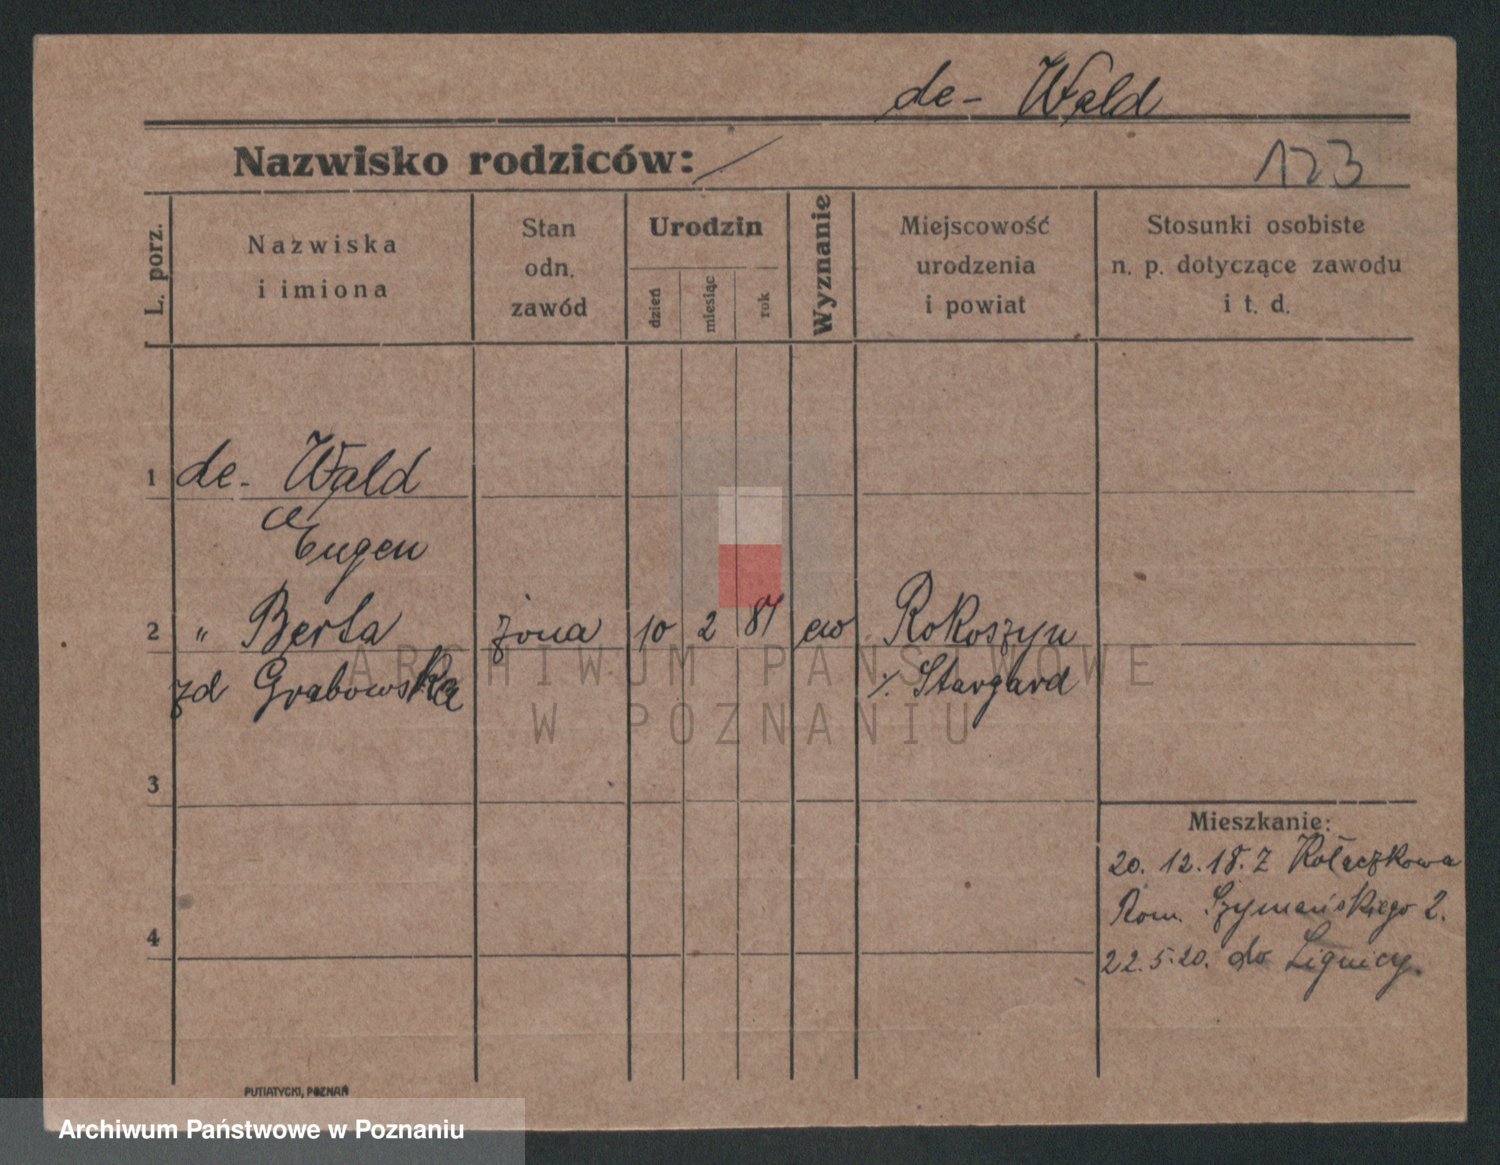 de- Wald
Nazwisko rodziców: /
123
L. porz.
Nazwiska
i imiona
Stan
odn.
zawód
Urodzin
dzień
miesiąc
rok
Wyznanie
Miejscowość
urodzenia
i powiat
Stosunki osobiste
n. p. dotyczące zawodu
i t. d.
1 de- Wald
Eugen
2 " Berta żona 10 2 87 ew Rokoszyn
zd Grabowska Stargard
3
4
Mieszkanie:
20. 12. 18. Z Kołaczkowa
Rom. Szymańskiego 2.
22. 5. 20. do Lignicy.
PUTIATYCKI, POZNAŃ
ARCHIWUM PAŃSTWOWE
W POZNANIU
Archiwum Państwowe w Poznaniu